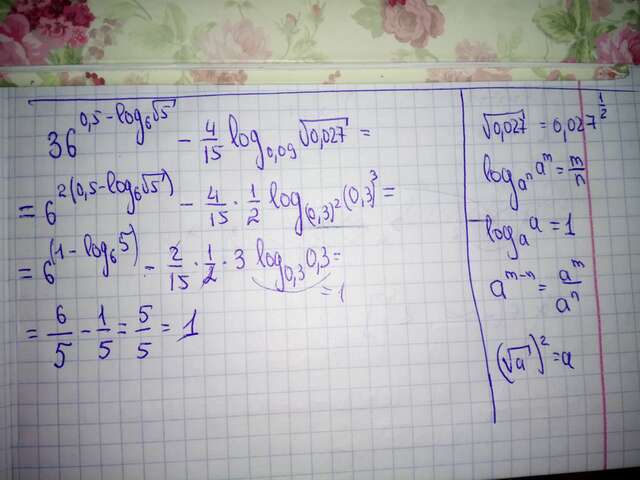 36^(0,5 - log₆√5) - 4/15 log₀,₀₉ √0,027 =
= 6^(2(0,5 - log₆√5)) - 4/15 · 1/2 log_(0,3)² (0,3)³ =
= 6^(1 - log₆5) - 2/15 · 1/2 · 3 log₀,₃ 0,3 =
= 1
= 6/5 - 1/5 = 5/5 = 1
√0,027 = 0,027^(1/2)
log_(aⁿ) a^m = m/n
log_a a = 1
a^(m-n) = a^m/a^n
(√a)² = a